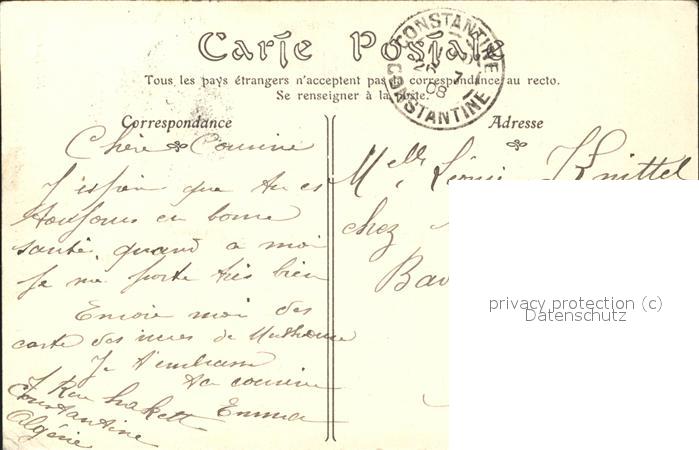 Carte Postale
Tous les pays étrangers n'acceptent pas la correspondance au recto.
Se renseigner à la poste.
CONSTANTINE
08
CONSTANTINE
Correspondance
Adresse
Chère Cousine
J'espère que tu es
toujours en bonne
santé, quand a moi
je me porte très bien
Envoie moi des
carte des vues de Mulhouse
Je t'embrasse
ta cousine
Emma
7 Rue
Constantine
Algérie
Melle Léonie Knittel
chez
Bav
privacy protection (c)
Datenschutz